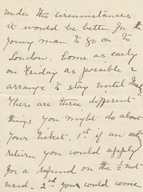 under the circumstances
it would be better for the
young man to go on to
London. Come as early
on Friday as possible &
arrange to stay until
There are three different
things you might do about
your ticket, 1st if an
return you could apply
for a refund on the ½ not
used - 2nd you could come